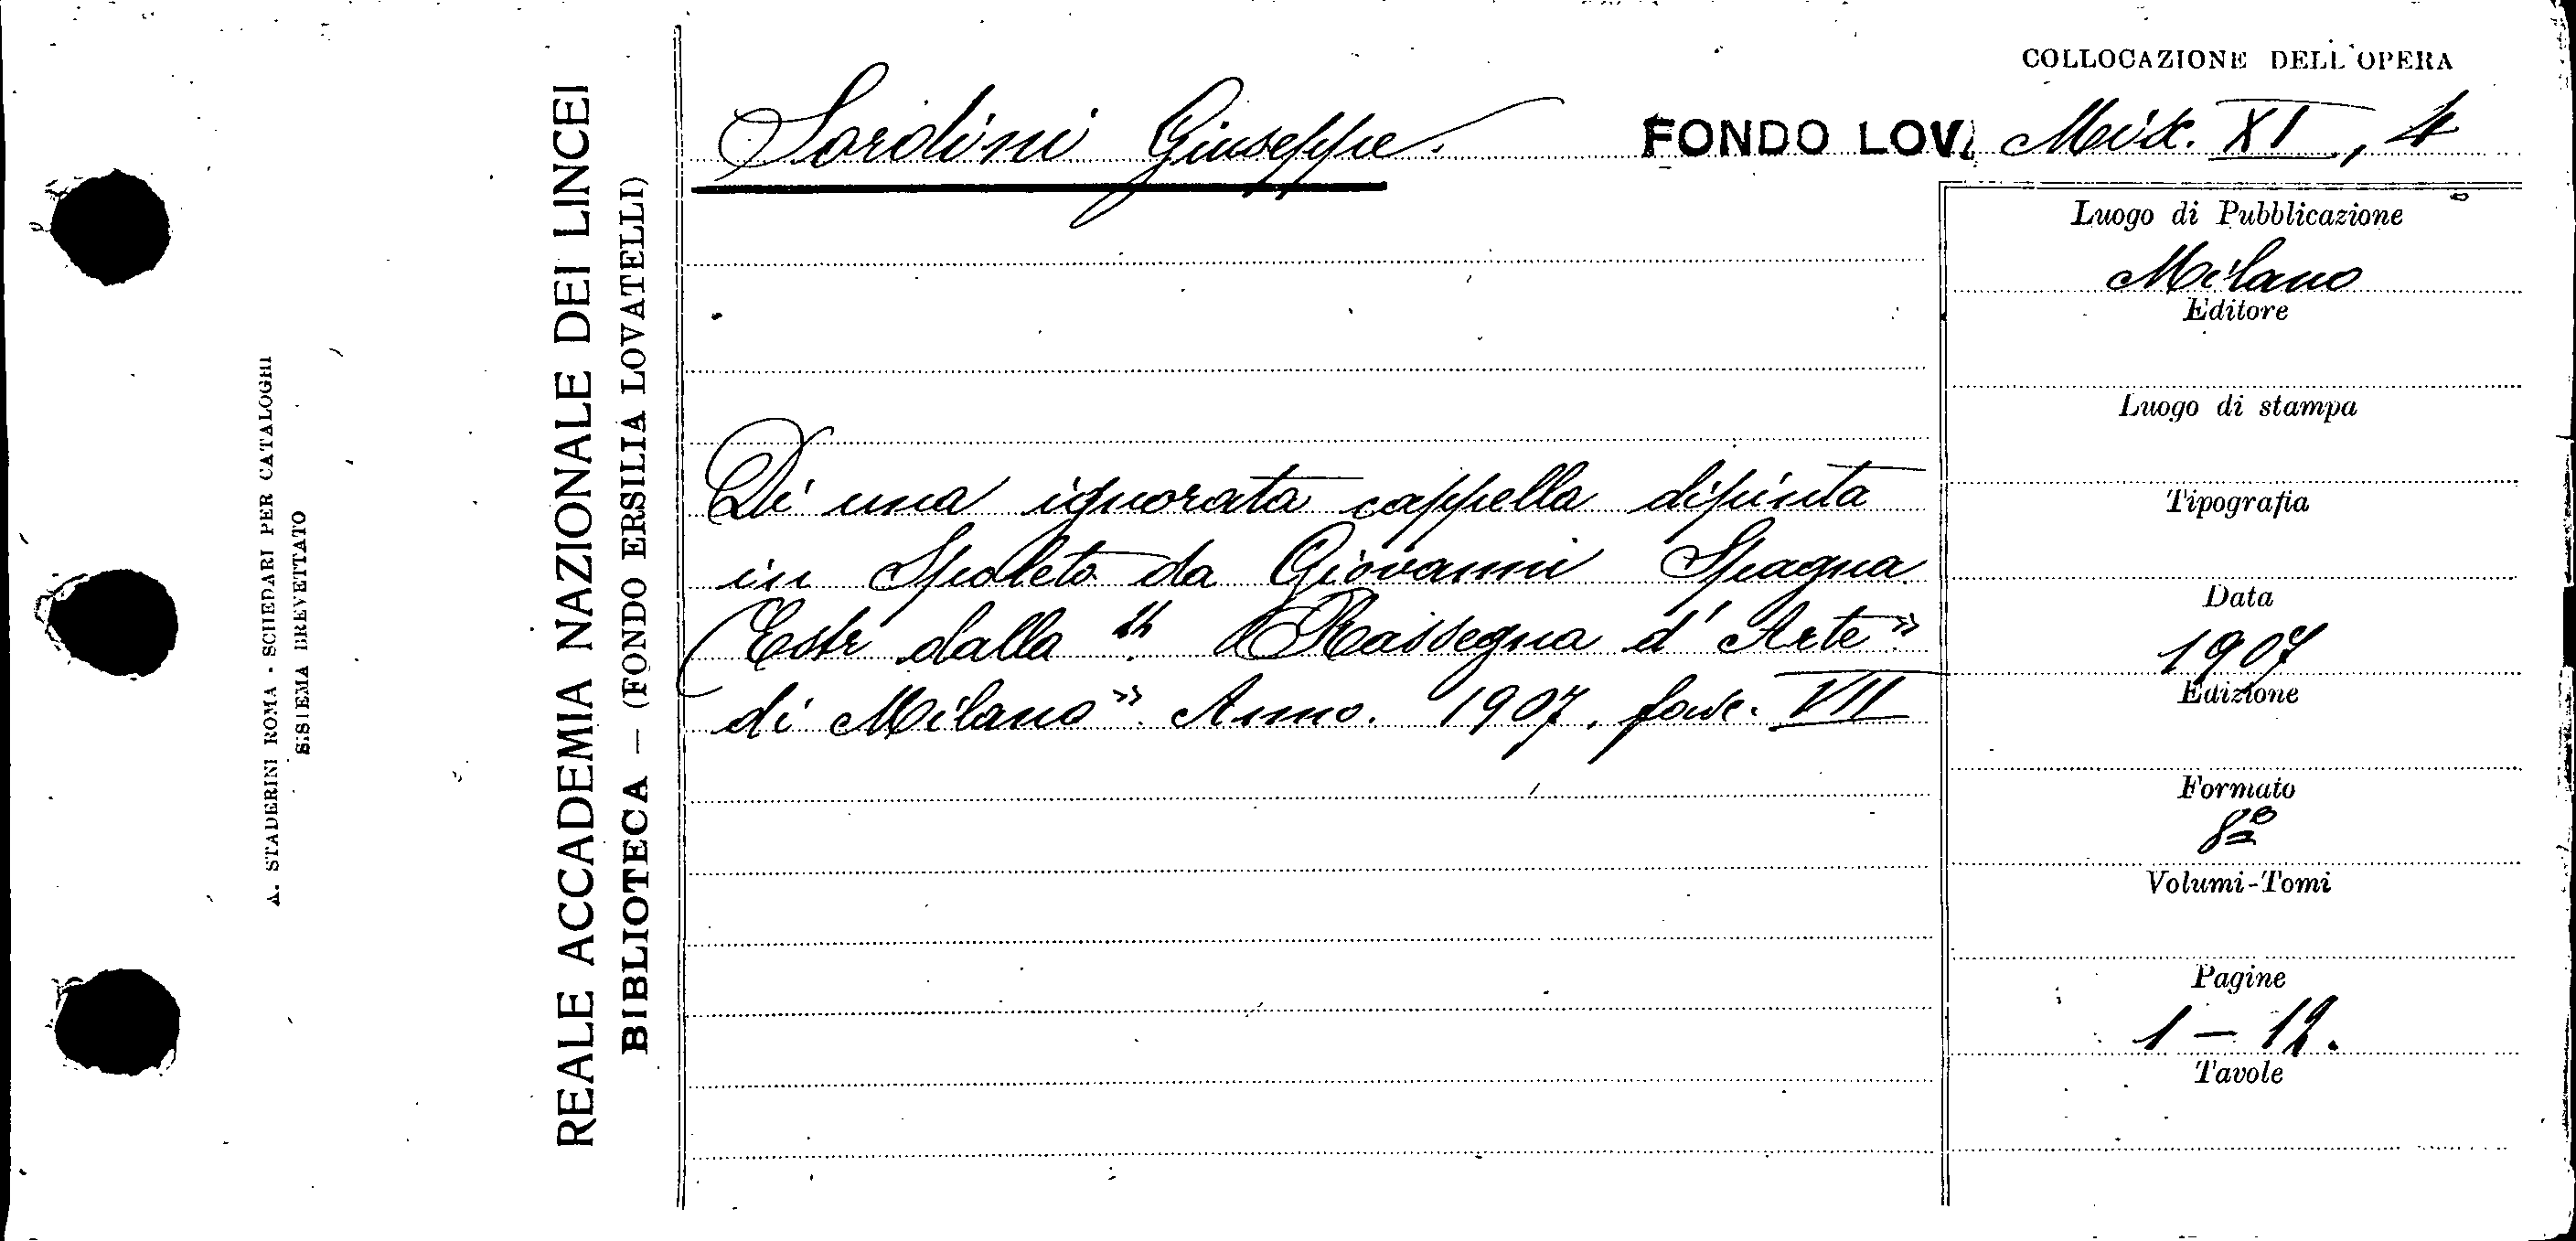 A. STADERINI ROMA - SCHEDARI PER CATALOGHI
SISTEMA BREVETTATO
REALE ACCADEMIA NAZIONALE DEI LINCEI
BIBLIOTECA — (FONDO ERSILIA LOVATELLI)
COLLOCAZIONE DELL'OPERA
Sordini Giuseppe.
FONDO LOV. Misc. XI, 4
Di una ignorata cappella dipinta
in Spoleto da Giovanni Spagna
(Estr dalla " Rassegna d'Arte"
di Milano". Anno. 1907. fasc. VII
Luogo di Pubblicazione
Milano
Editore
Luogo di stampa
Tipografia
Data
1907
Edizione
Formato
8º
Volumi-Tomi
Pagine
1 – 12.
Tavole